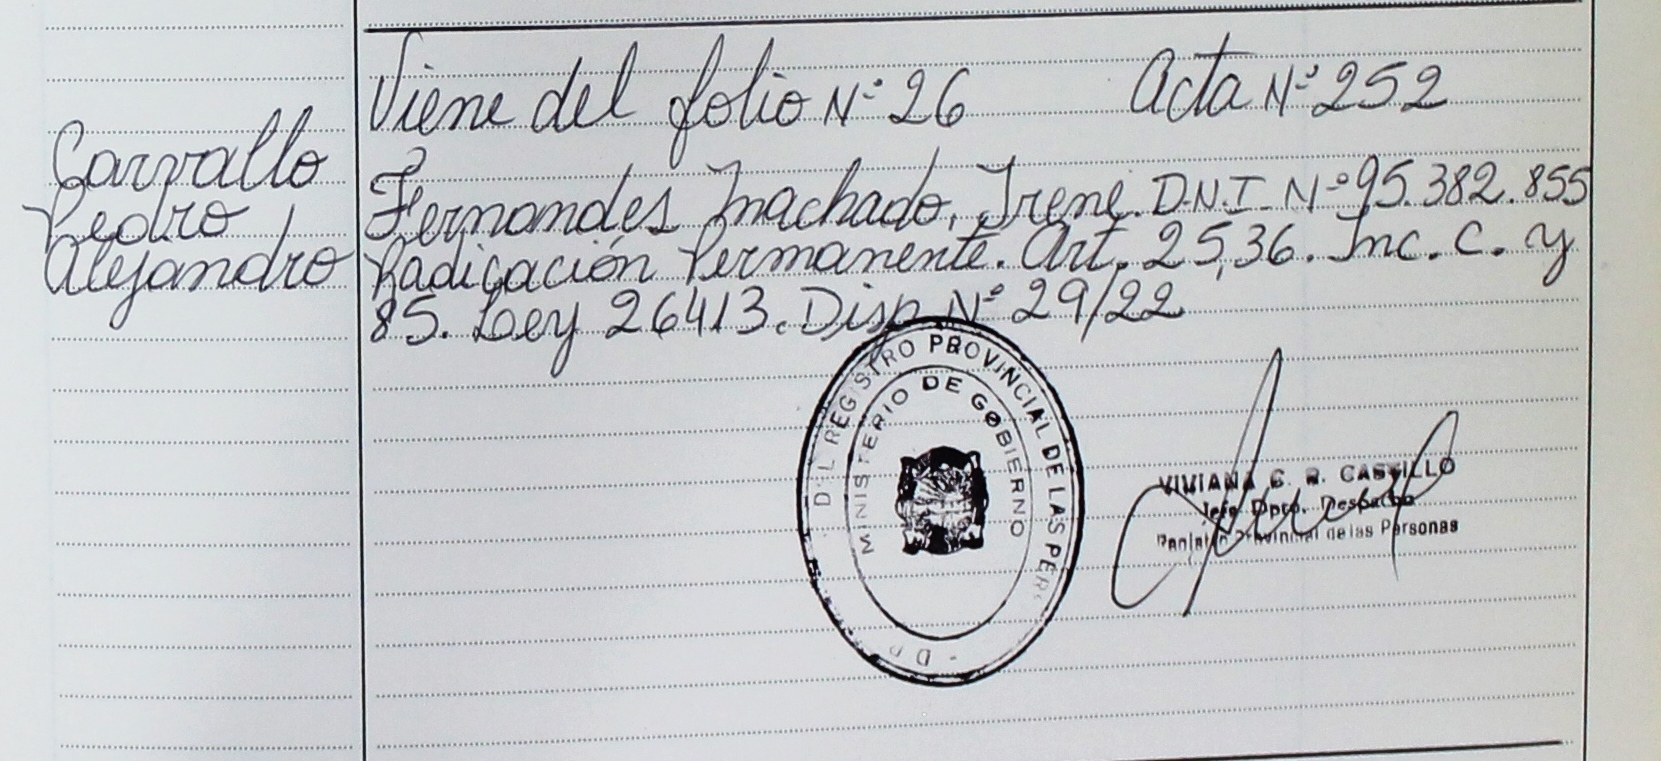 Carvallo
Pedro
Alejandro
Viene del folio N° 26 Acta N° 252
Fernandes Machado, Irene. D.N.I. N° 95.382.855
Radicación Permanente. Art. 25,36. Inc. C. y
85. Ley 26413. Disp N° 29/22
REGISTRO PROVINCIAL DE LAS
MINISTERIO DE GOBIERNO
VIVIANA C. R. CASTILLO
Jefe Dpto. Despacho
Provincial de las Personas